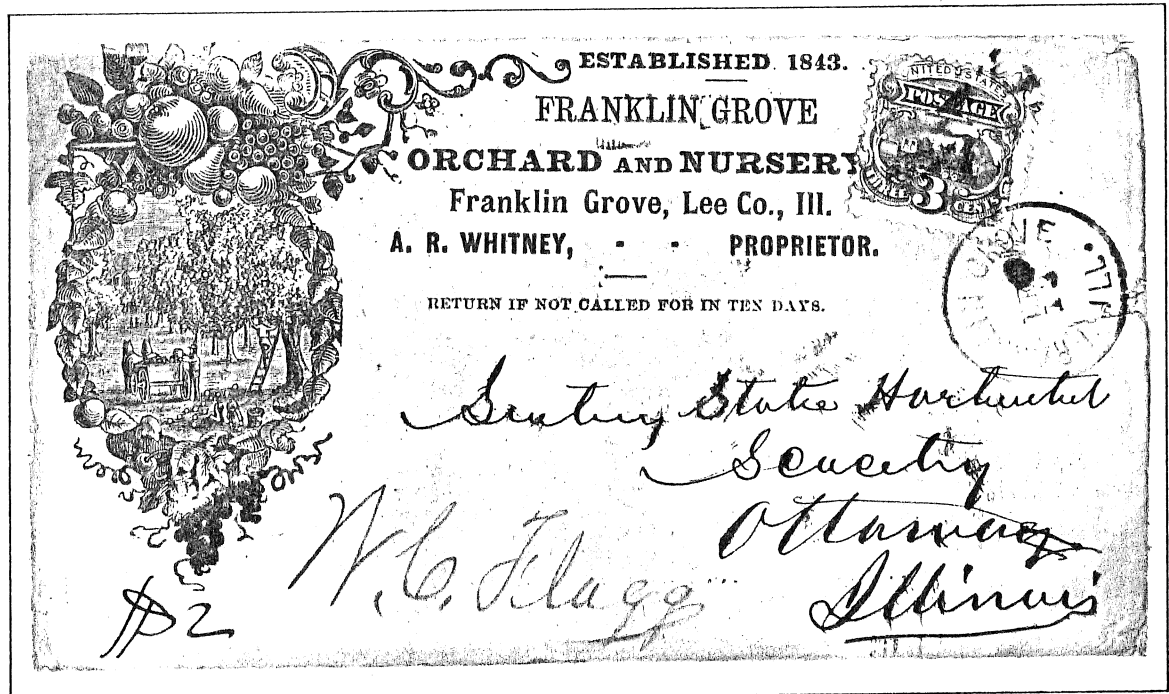 ESTABLISHED 1843.
FRANKLIN GROVE
ORCHARD AND NURSERY
Franklin Grove, Lee Co., Ill.
A. R. WHITNEY, - - PROPRIETOR.
RETURN IF NOT CALLED FOR IN TEN DAYS.
UNITED STATES
POSTAGE
THREE 3 CENTS
GROVE ILL.
State
Ottaway
Illinois
W. C. Flagg
$2